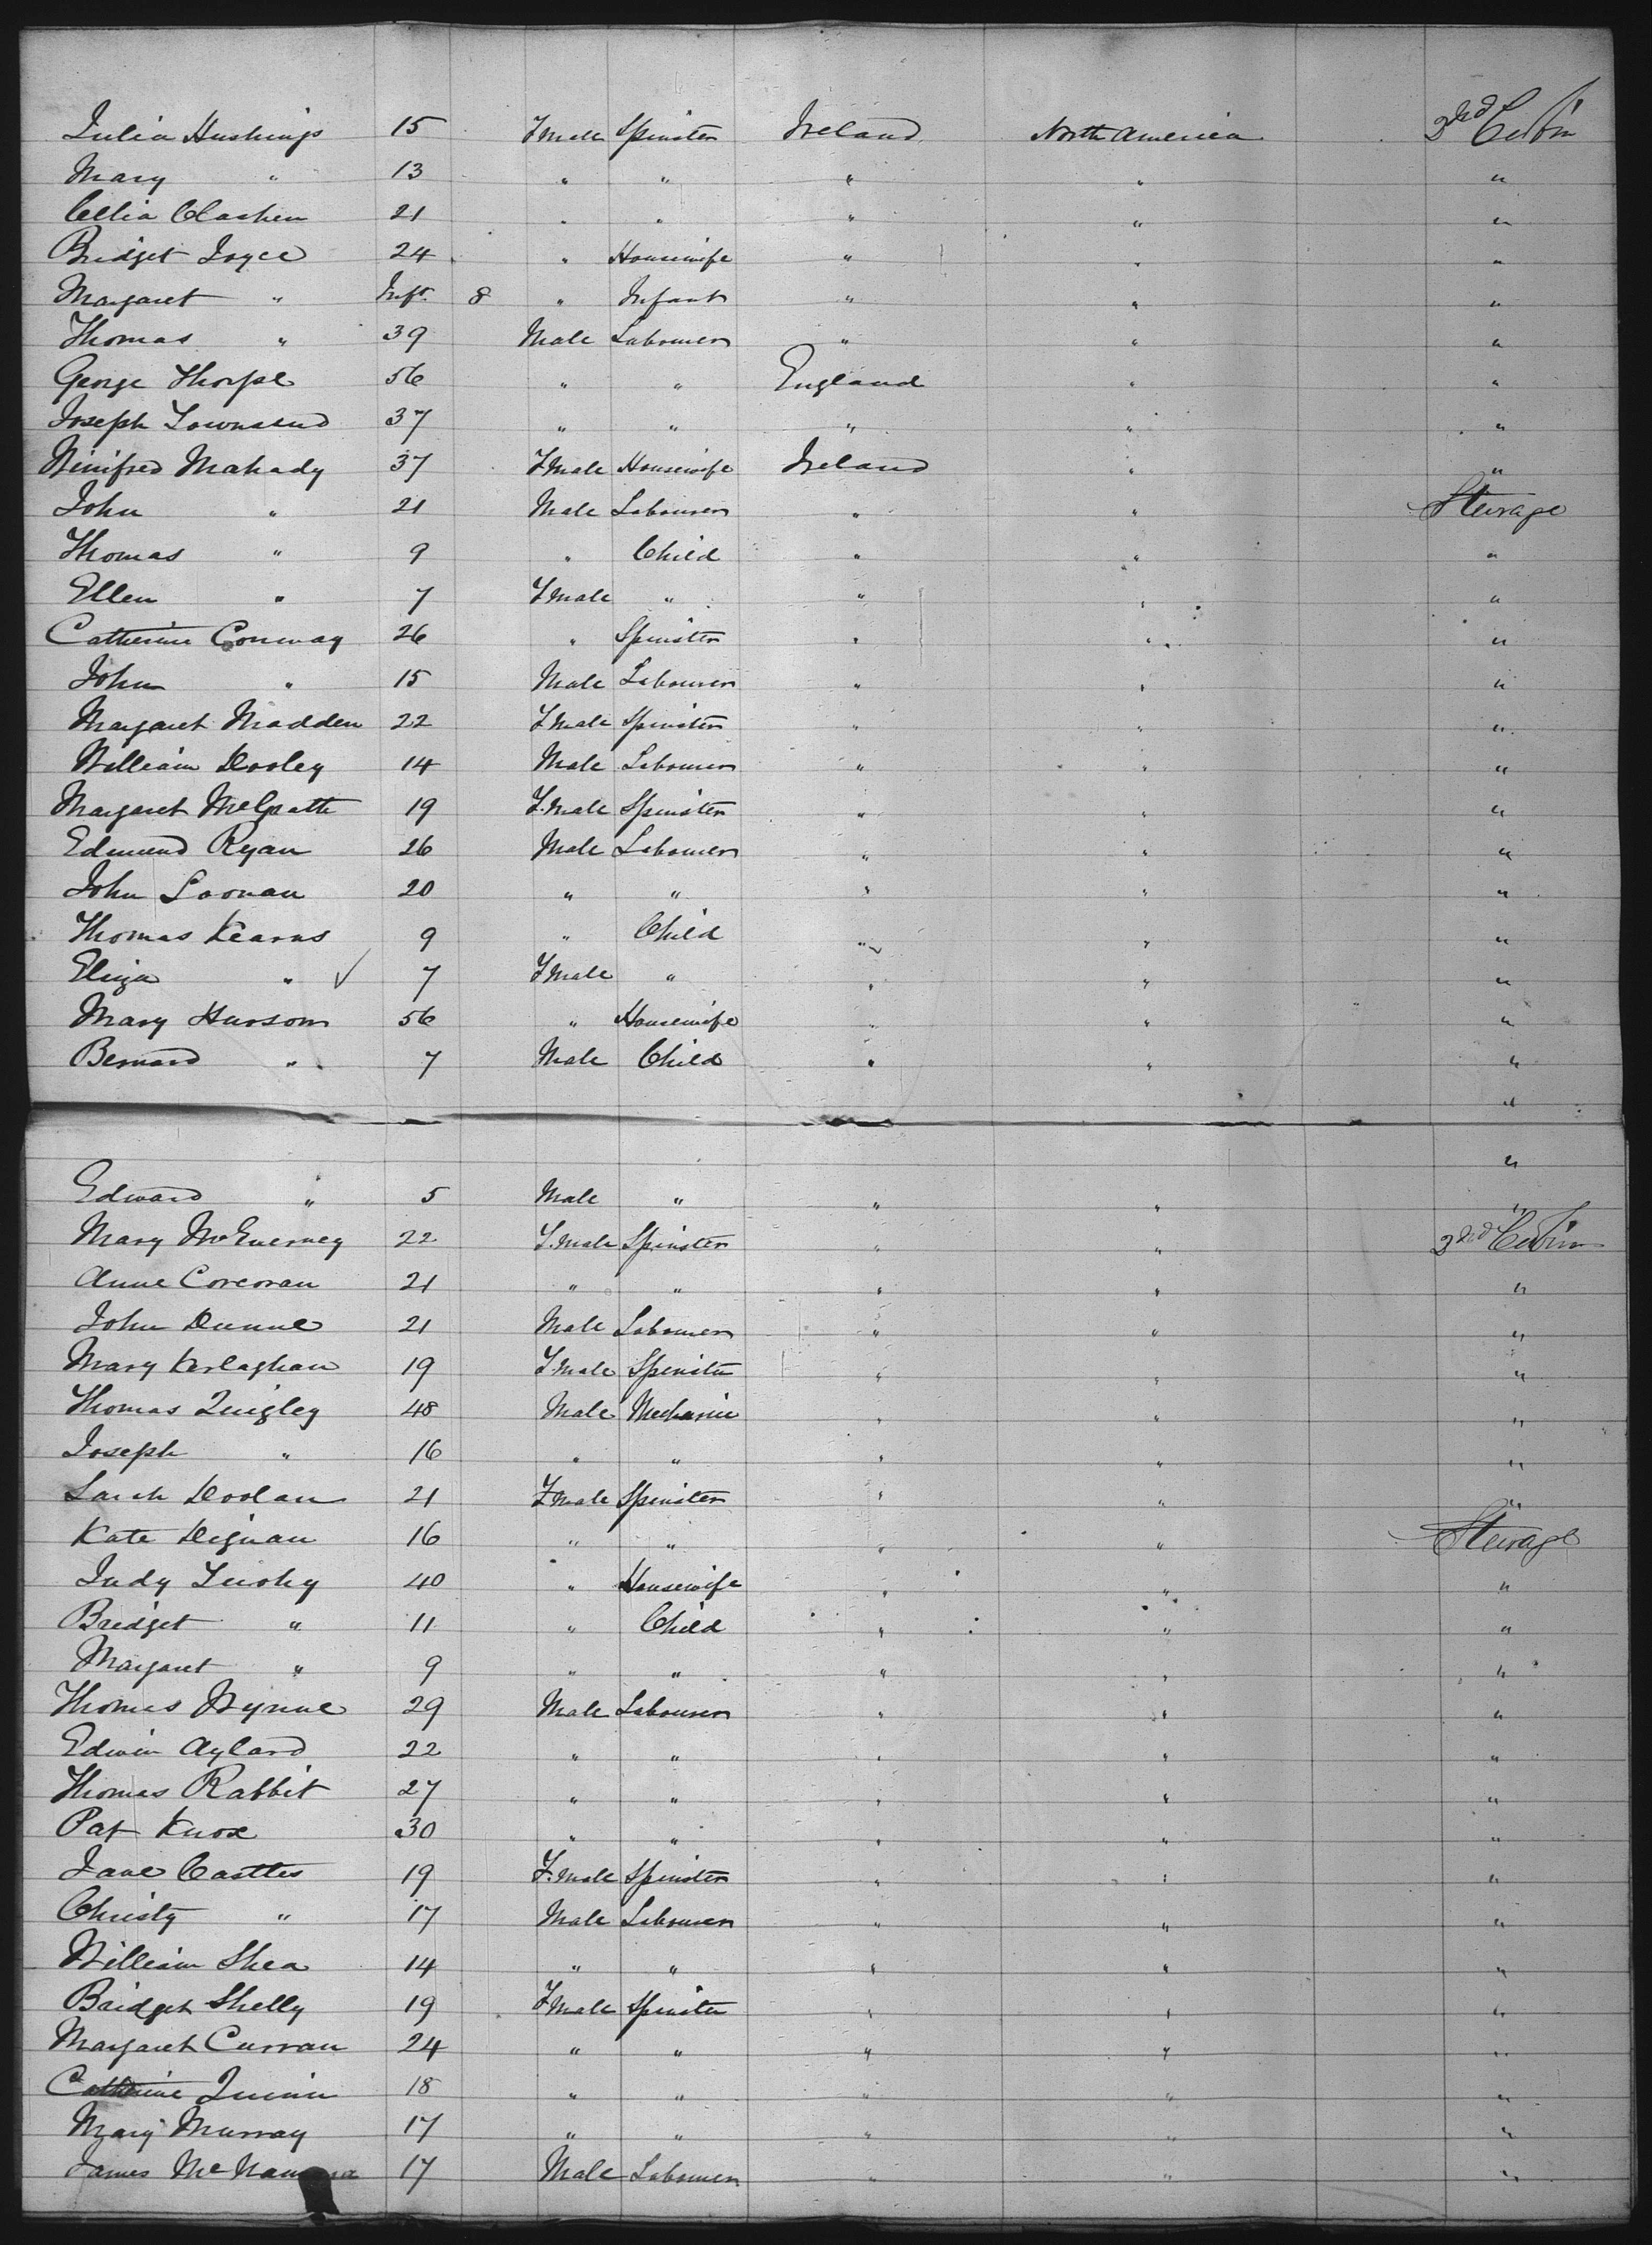 Julia Hushings 15 Fmale Spinster Ireland North America 3rd Cabin
Mary " 13 " " " " "
Celia Clashen 21 " " " " "
Bridget Joyce 24 " Housewife " " "
Margaret " Inft. 8 " Infant " " "
Thomas " 39 Male Labourer " " "
George Thorpe 56 " " England " "
Joseph Townsend 37 " " " " "
Winifred Mahady 37 Fmale Housewife Ireland " "
John " 21 Male Labourer " " Sterage
Thomas " 9 " Child " " "
Ellen " 7 Fmale " " " "
Catherine Conway 26 " Spinster " " "
John " 15 Male Labourer " " "
Margaret Madden 22 Fmale Spinster " " "
William Dooley 14 Male Labourer " " "
Margaret McGrath 19 F.male Spinster " " "
Edmund Ryan 26 Male Labourer " " "
John Loonan 20 " " " " "
Thomas Kearns 9 " Child " " "
Eliza " ✓ 7 Fmale " " " "
Mary Hurson 56 " Housewife " " "
Bernard " 7 Male Child " " "
"
"
Edward " 5 Male " " " "
Mary McEnerney 22 F.male Spinster " " 3rd Cabin
Anne Corcoran 21 " " " " "
John Dunne 21 Male Labourer " " "
Mary Kerlaghan 19 F.male Spinster " " "
Thomas Quigley 48 Male Mechanic " " "
Joseph " 16 " " " " "
Sarah Doolan 21 Fmale Spinster " " "
Kate Dignan 16 " " " " Sterage
Judy Tuohy 40 " Housewife " " "
Bridget " 11 " Child " " "
Margaret " 9 " " " " "
Thomas Wynne 29 Male Labourer " " "
Edwin Aylard 22 " " " " "
Thomas Rabbit 27 " " " " "
Pat Knox 30 " " " " "
Jane Castles 19 F.male Spinster " " "
Christy " 17 Male Labourer " " "
William Shea 14 " " " " "
Bridget Shelly 19 Fmale Spinster " " "
Margaret Curran 24 " " " " "
Catherine Quinn 18 " " " " "
Mary Murray 17 " " " " "
James McNamara 17 Male Labourer " " "